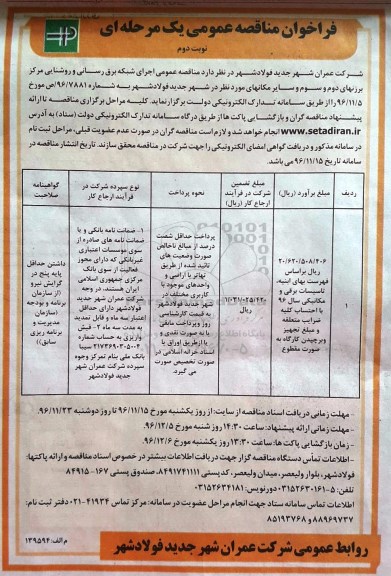 فراخوان مناقصه عمومی یک مرحله ای
نوبت دوم
شرکت عمران شهر جدید فولادشهر در نظر دارد مناقصه عمومی اجرای شبکه برق رسانی و روشنایی مرکز
برزنهای دوم و سوم و سایر مکانهای مورد نظر در شهر جدید فولادشهر به شماره ۹۶/۷۸۸۱/ص مورخ
۹۶/۱۱/۵ را از طریق سامانه تدارک الکترونیکی دولت برگزار نماید. کلیه مراحل برگزاری مناقصه تا ارائه
پیشنهاد مناقصه گران و بازگشایی پاکت ها از طریق درگاه سامانه تدارک الکترونیکی دولت (ستاد) به آدرس
www.setadiran.ir انجام خواهد شد و لازم است مناقصه گران در صورت عدم عضویت قبلی، مراحل ثبت نام
در سامانه مذکور و دریافت گواهی امضای الکترونیکی را جهت شرکت در مناقصه محقق سازند. تاریخ انتشار مناقصه در
سامانه تاریخ ۹۶/۱۱/۱۵ می باشد.
ردیف
مبلغ برآورد (ریال)
مبلغ تضمین
شرکت در فرآیند
ارجاع کار (ریال)
نحوه پرداخت
نوع سپرده شرکت در
فرآیند ارجاع کار
گواهینامه
صلاحیت
۱
۲۰/۶۲۰/۵۰۸/۴۰۶
ریال براساس
فهرست بهای ابنیه،
تاسیسات برقی و
مکانیکی سال ۹۶
با احتساب کلیه
ضرایب متعلقه
و مبلغ تجهیز
وبرچیدن کارگاه به
صورت مقطوع
۱/۰۳۱/۰۲۵/۴۲۰
ریال
پرداخت حداقل شصت
درصد از مبالغ ناخالص
صورت وضعیت های
تائید شده از طریق
تهاتر با اراضی و
واحدهای موجود با
کاربری مختلف در
شهر جدید فولادشهر
به قیمت کارشناسی
روز و پرداخت مابقی
یا به صورت نقدی و
یا از طریق اوراق یا
اسناد خزانه اسلامی در
صورت تخصیص صورت
می گیرد
۱- ضمانت نامه بانکی و یا
ضمانت نامه های صادره از
سوی موسسات اعتباری
غیربانکی که دارای مجوز
فعالیت از سوی بانک
مرکزی جمهوری اسلامی
ایران هستند، در وجه
شرکت عمران شهر جدید
فولادشهر دارای حداقل
اعتبار سه ماه و قابل تمدید
به مدت سه ماه ۲- فیش
واریزی به حساب شماره
۲۱۷۳۶۹۰۳۰۵۰۰۴ سیبا
بانک ملی بنام تمرکز وجوه
سپرده شرکت عمران شهر
جدید فولادشهر
داشتن حداقل
پایه پنج در
گرایش نیرو
(از سازمان
برنامه و بودجه
/ سازمان
مدیریت و
برنامه ریزی
سابق)
- مهلت زمانی دریافت اسناد مناقصه از سایت: از روز یکشنبه مورخ ۹۶/۱۱/۱۵ تا روز دوشنبه ۹۶/۱۱/۲۳.
- مهلت زمانی ارائه پیشنهاد: ساعت ۱۴:۳۰ روز شنبه مورخ ۹۶/۱۲/۵
- زمان بازگشایی پاکت ها: ساعت ۱۳:۳۰ روز یکشنبه مورخ ۹۶/۱۲/۶
- اطلاعات تماس دستگاه مناقصه گزار جهت دریافت اطلاعات بیشتر در خصوص اسناد مناقصه و ارائه پاکتها:
فولادشهر، بلوار ولیعصر، میدان ولیعصر، کد پستی ۸۴۹۱۷۴۱۱۱۱، صندوق پستی ۱۶۷-۸۴۹۱۵
تلفن: ۵-۰۳۱۵۲۶۳۰۱۶۱ دورنویس: ۰۳۱۵۲۶۳۴۱۸۱
اطلاعات تماس سامانه ستاد جهت انجام مراحل عضویت در سامانه: مرکز تماس ۴۱۹۳۴-۰۲۱ دفتر ثبت نام:
۸۸۹۶۹۷۳۷ و ۸۵۱۹۳۷۶۸
روابط عمومی شرکت عمران شهر جدید فولادشهر
م الف: ۱۳۹۵۹۴